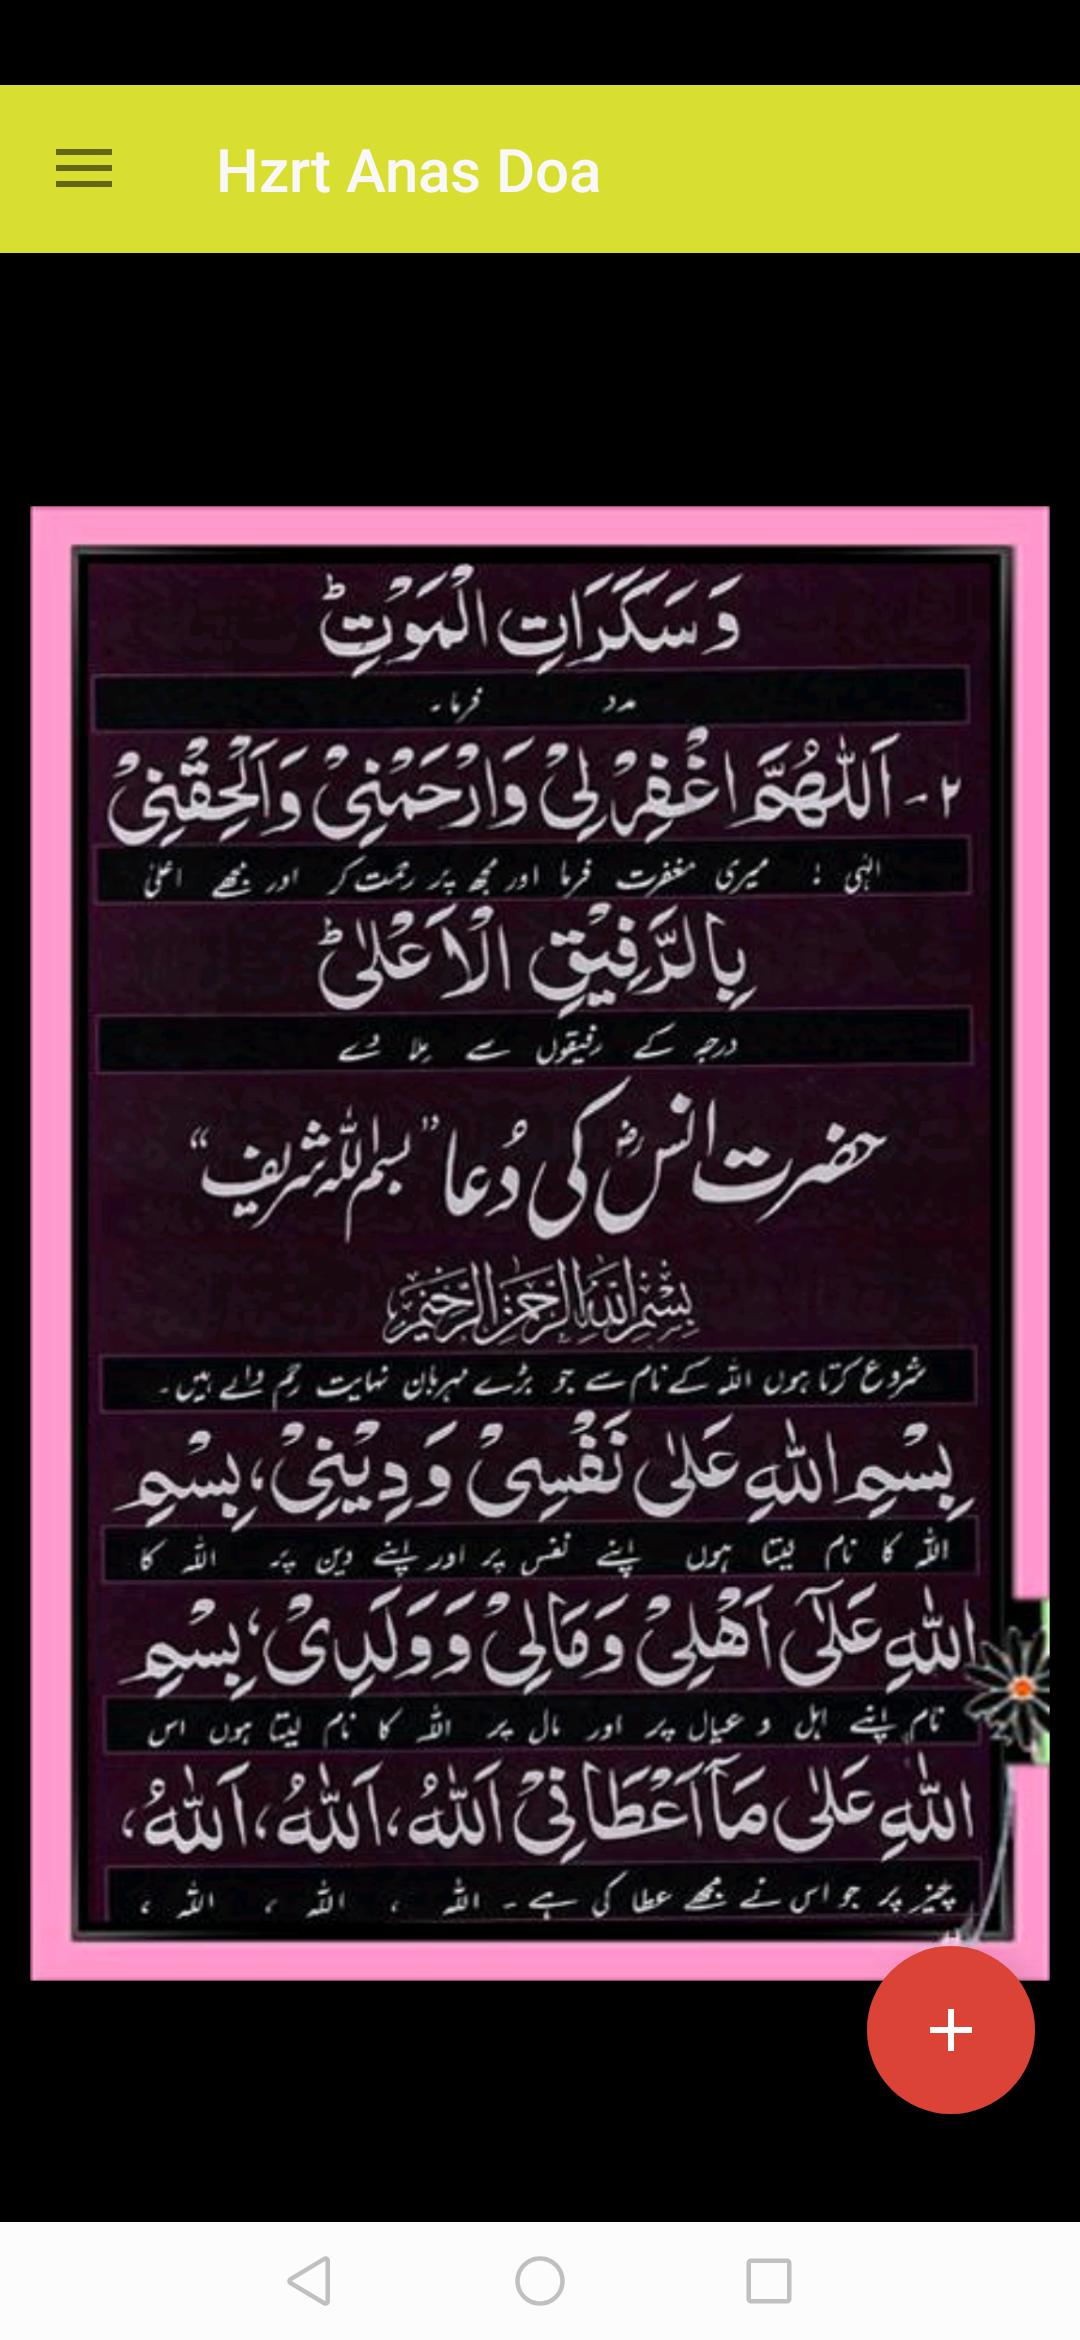 Hzrt Anas Doa
وَ سَكَرَاتِ الْمَوْتِ ؕ
مدد فرما۔
۲۔ اَللّٰهُمَّ اغْفِرْ لِيْ وَارْحَمْنِيْ وَاَلْحِقْنِيْ
الٰہی ! میری مغفرت فرما اور مجھ پر رحمت کر اور مجھے اعلیٰ
بِالرَّفِيْقِ الْاَعْلٰى ؕ
درجہ کے رفیقوں سے ملا دے
حضرت انسؓ کی دُعا "بسم اللہ شریف"
بِسْمِ اللهِ الرَّحْمٰنِ الرَّحِيْمِ
شروع کرتا ہوں اللہ کے نام سے جو بڑے مہربان نہایت رحم والے ہیں۔
بِسْمِ اللهِ عَلٰى نَفْسِىْ وَ دِيْنِىْ، بِسْمِ
اللہ کا نام لیتا ہوں اپنے نفس پر اور اپنے دین پر اللہ کا
اللهِ عَلٰٓى اَهْلِىْ وَمَالِىْ وَوَلَدِىْ، بِسْمِ
نام اپنے اہل و عیال پر اور مال پر اللہ کا نام لیتا ہوں اس
اللهِ عَلٰى مَآ اَعْطَانِىْ اَللهُ، اَللهُ، اَللهُ،
چیز پر جو اس نے مجھے عطا کی ہے ۔ اللہ ، اللہ ، اللہ ،